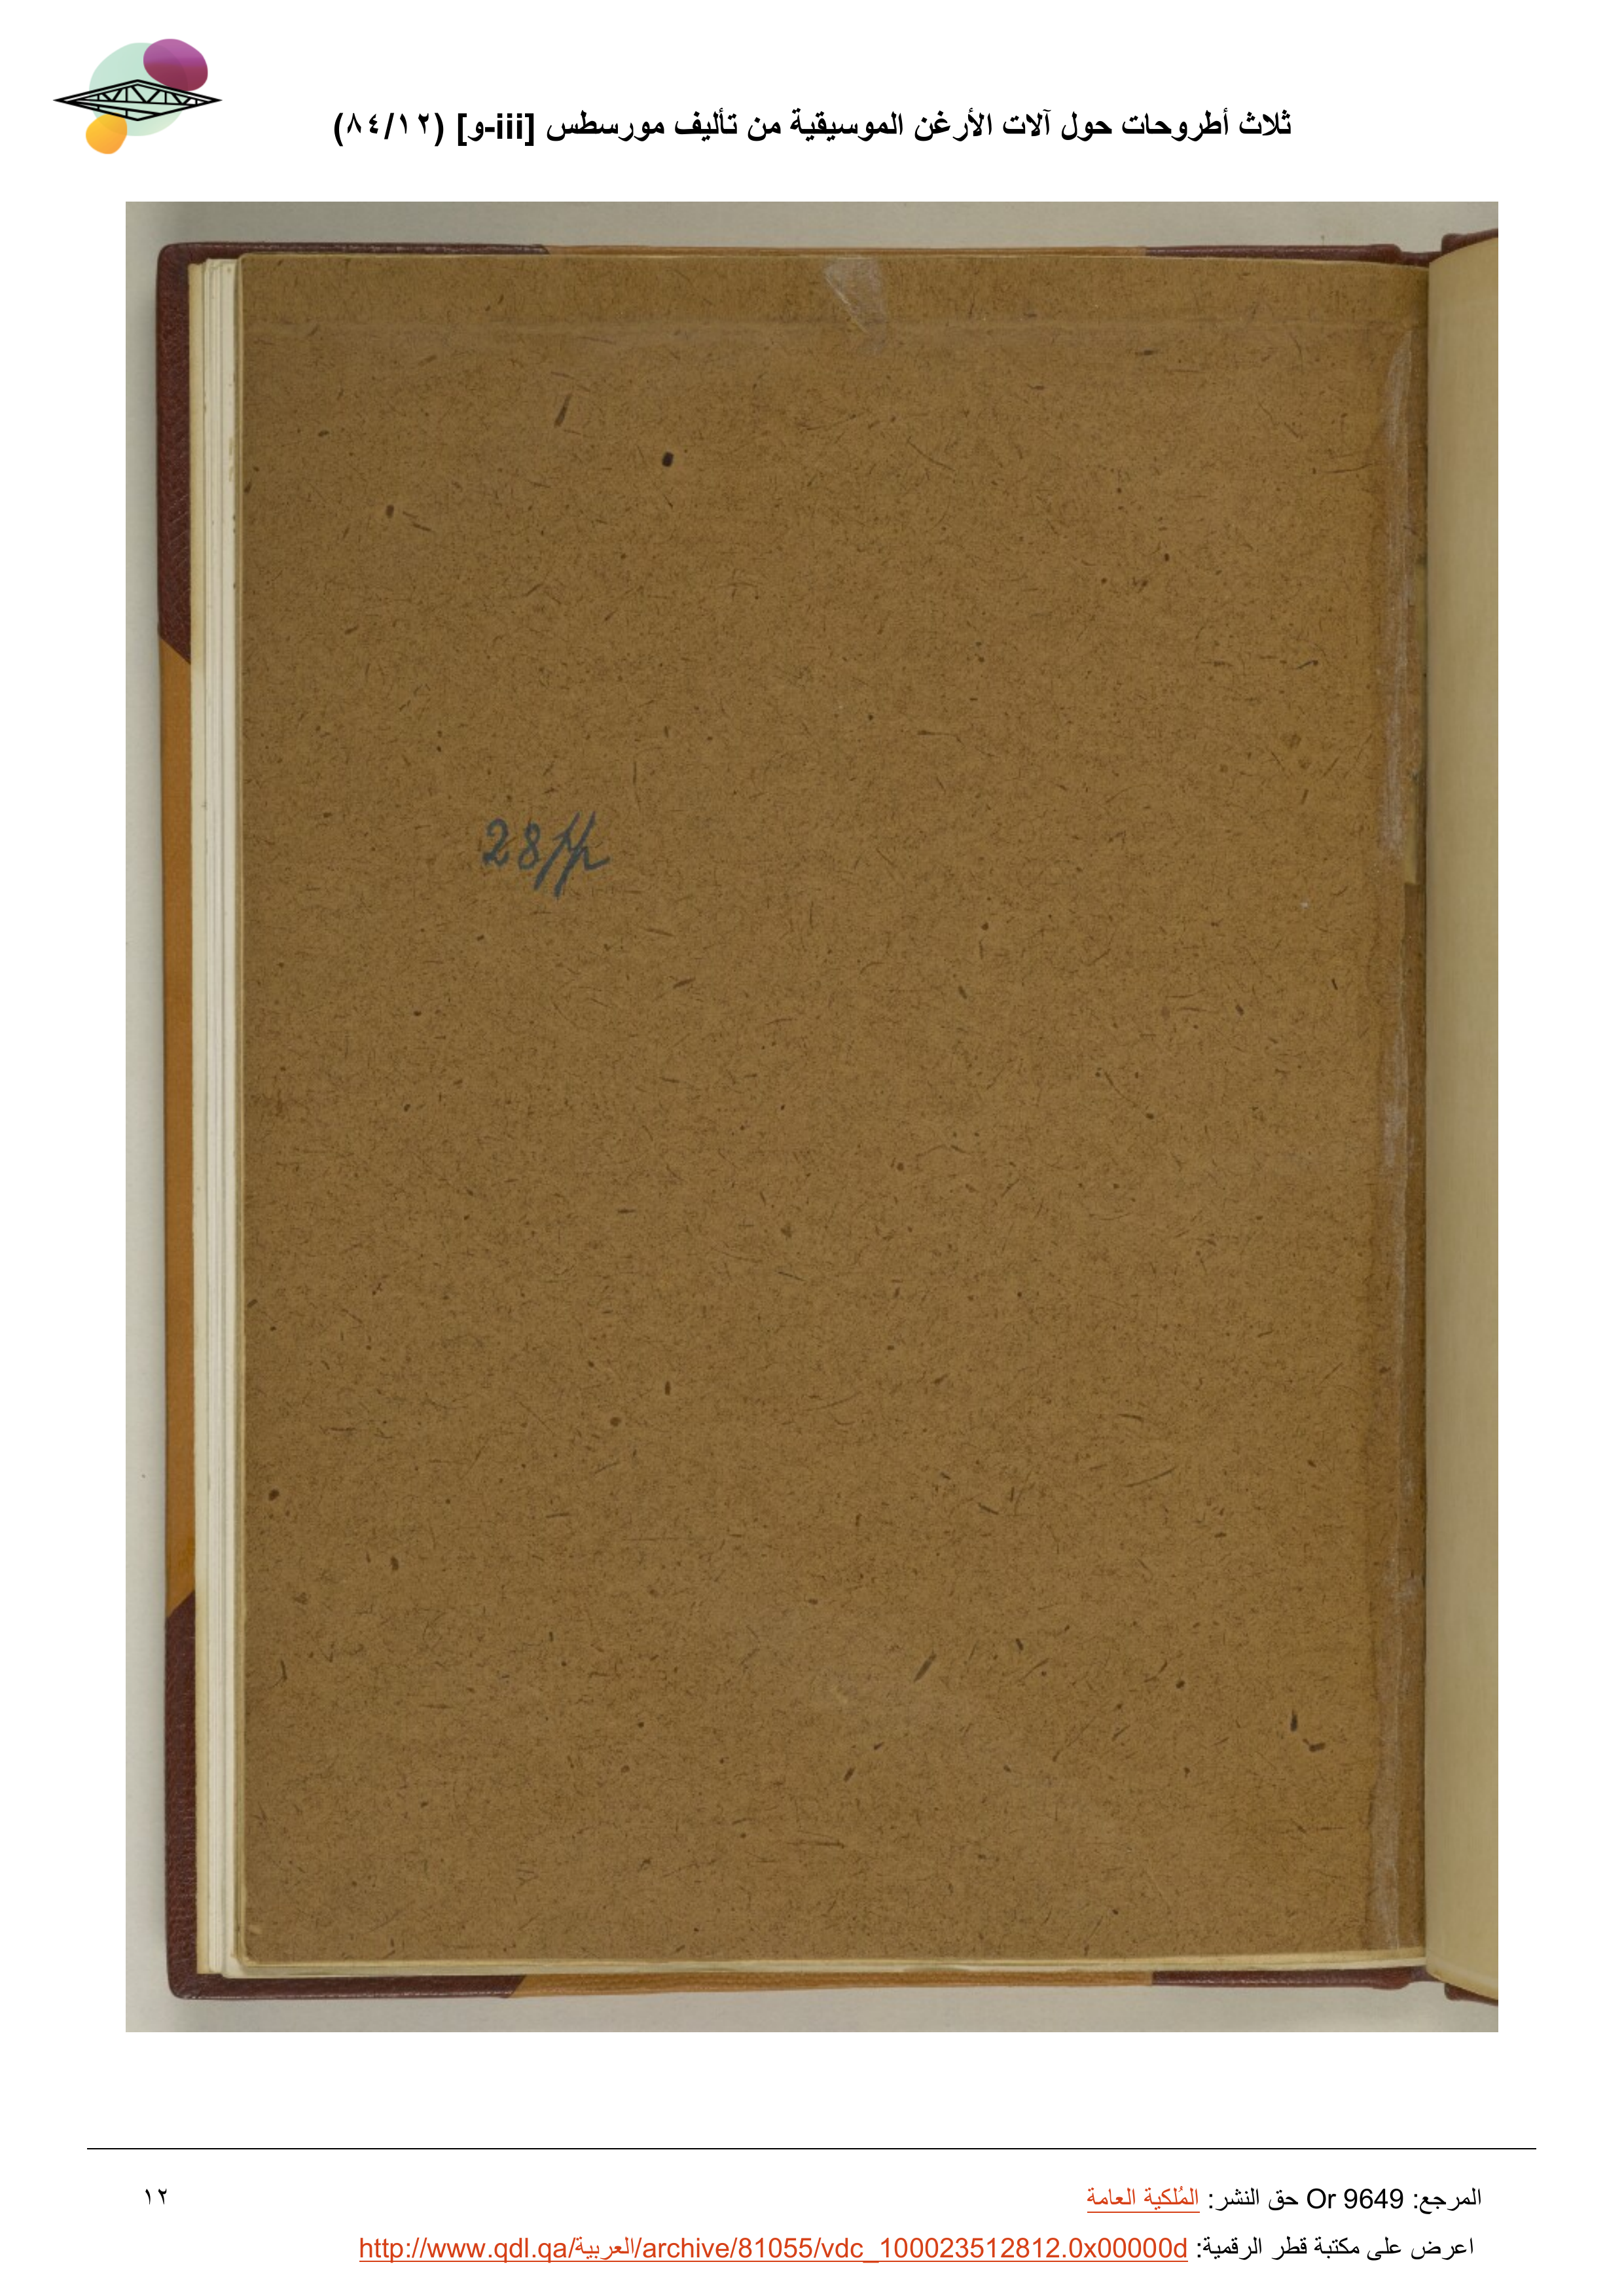 ثلاث أطروحات حول آلات الأرغن الموسيقية من تأليف مورسطس [iii-و] (٨٤/١٢)
28pp
المرجع: Or 9649 حق النشر: المُلكية العامة
١٢
اعرض على مكتبة قطر الرقمية: http://www.qdl.qa/العربية/archive/81055/vdc_100023512812.0x00000d